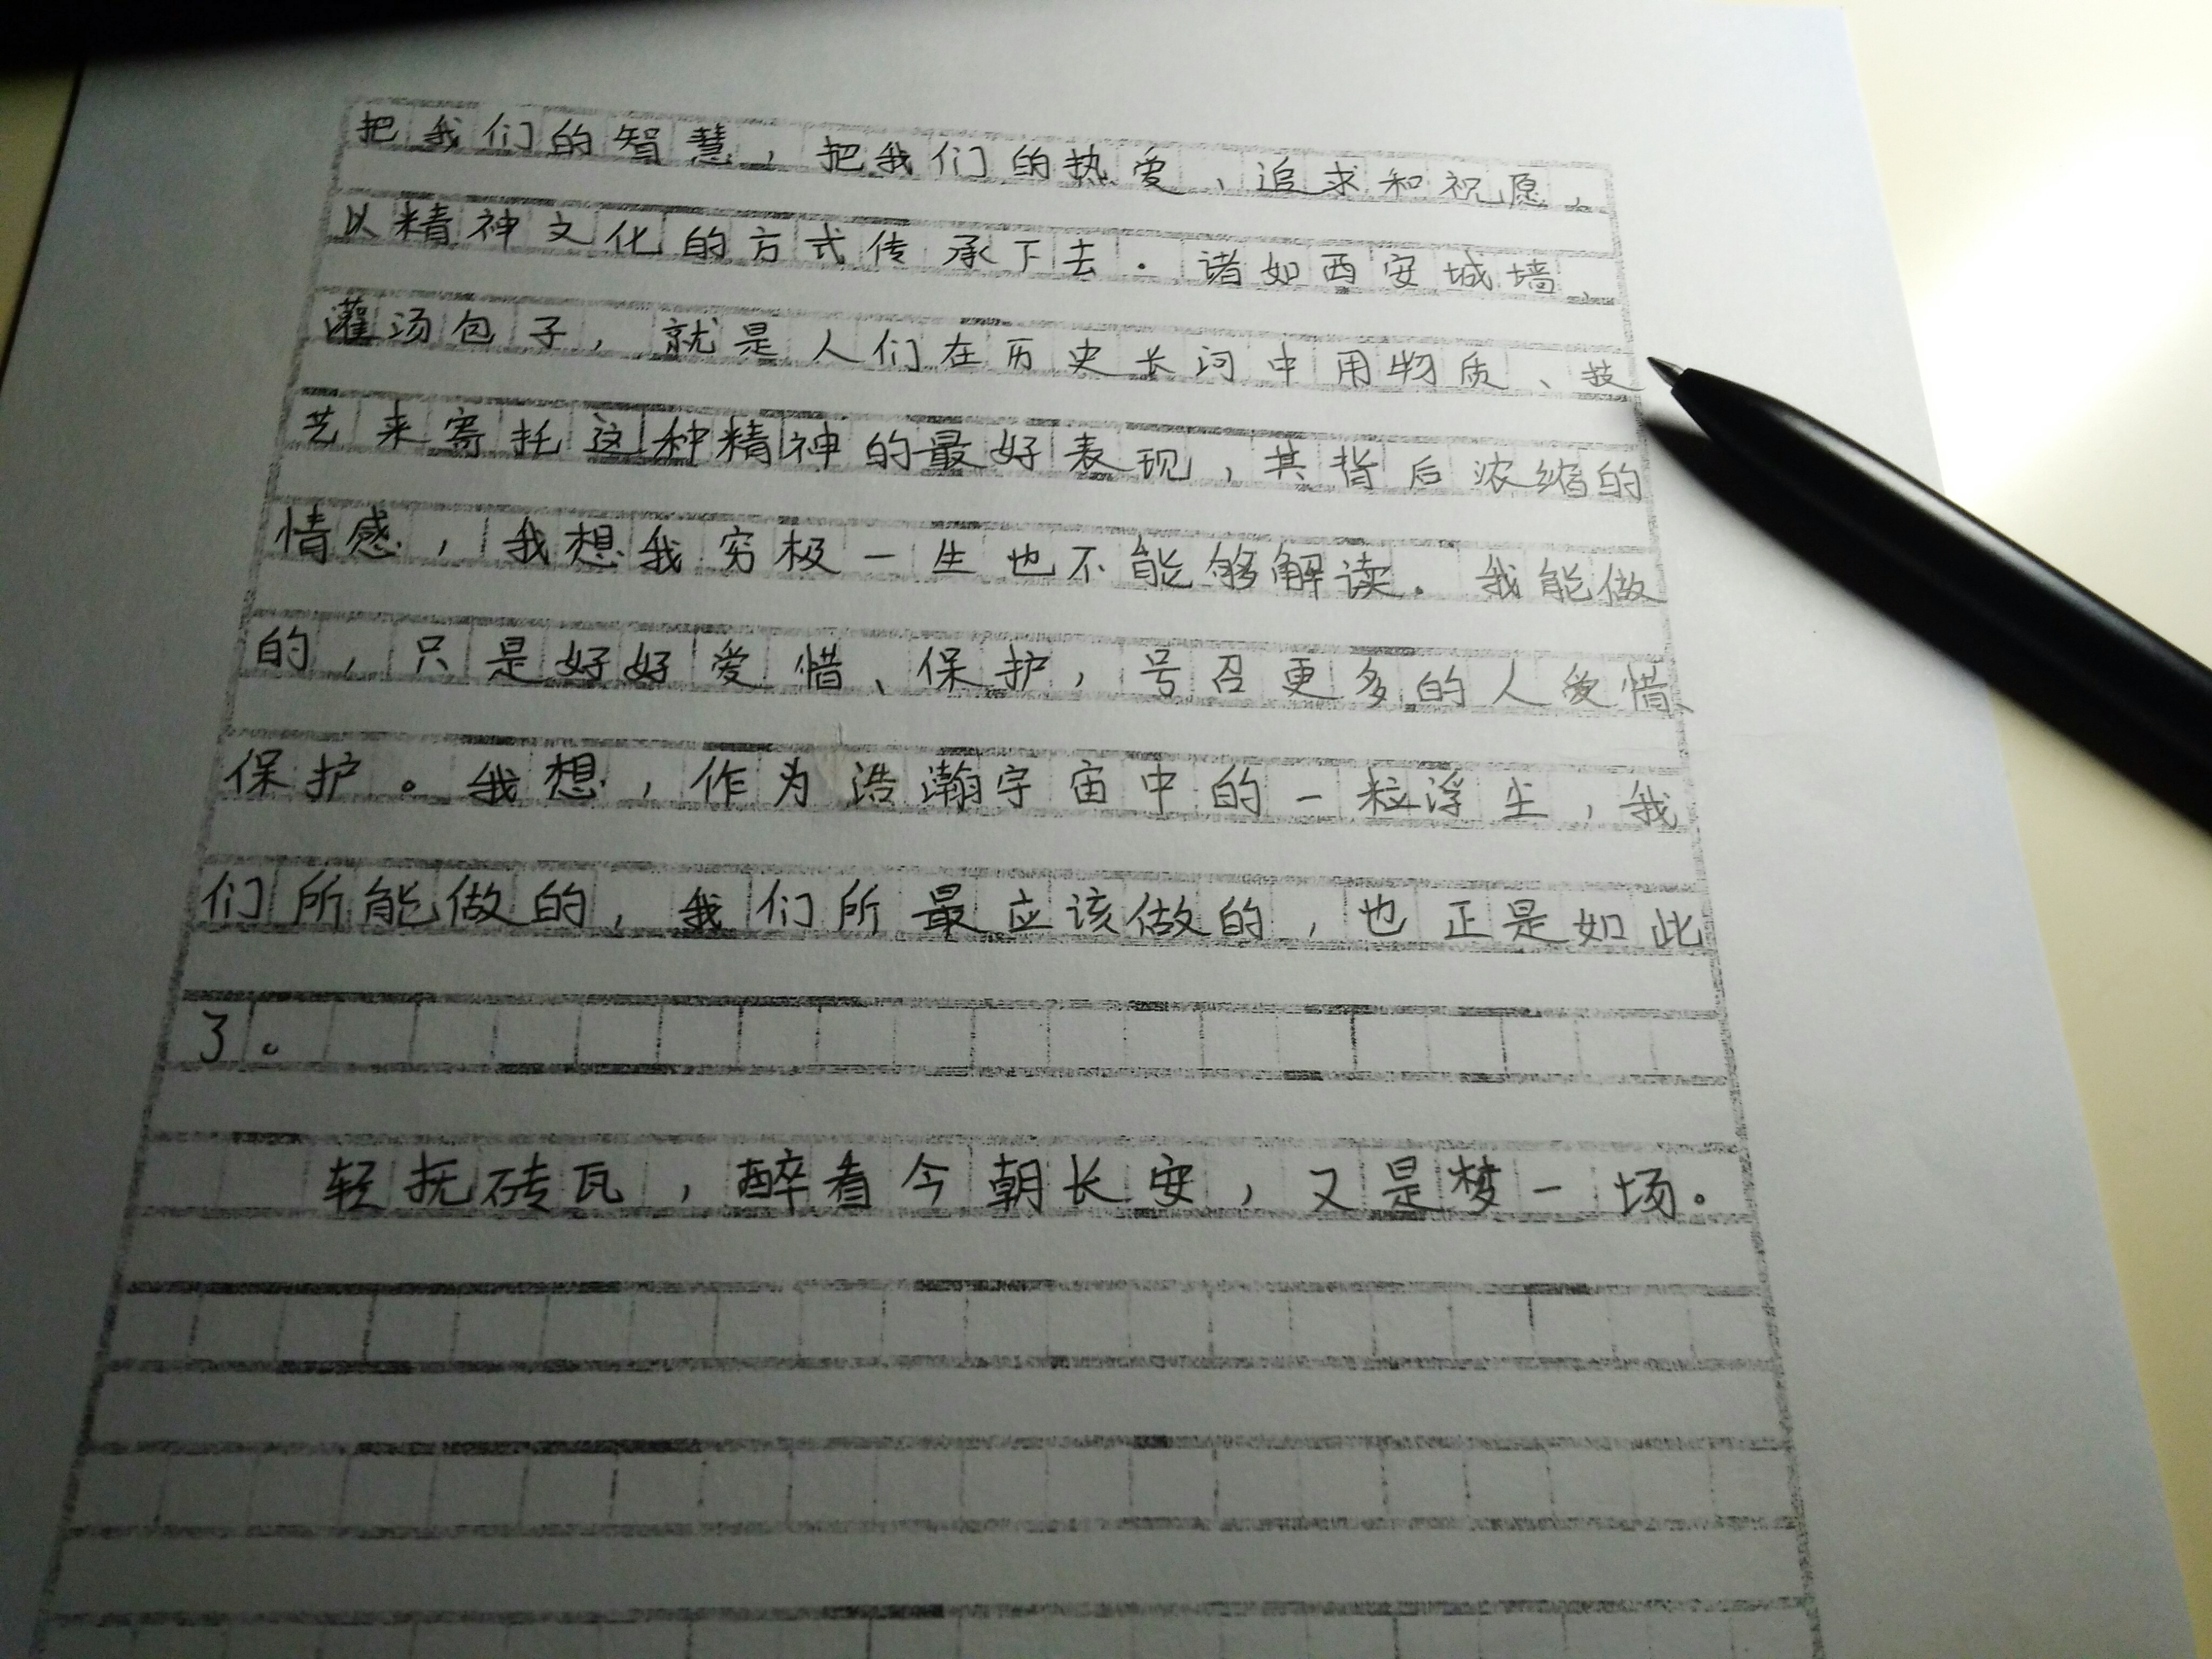 把我们的智慧，把我们的热爱、追求和祝愿，
以精神文化的方式传承下去．诸如西安城墙、
灌汤包子，就是人们在历史长河中用物质、技
艺来寄托这种精神的最好表现，其背后浓缩的
情感，我想我穷极一生也不能够解读．我能做
的，只是好好爱惜、保护，号召更多的人爱惜、
保护。我想，作为浩瀚宇宙中的一粒浮尘，我
们所能做的，我们所最应该做的，也正是如此
了。
轻抚砖瓦，醉看今朝长安，又是梦一场．